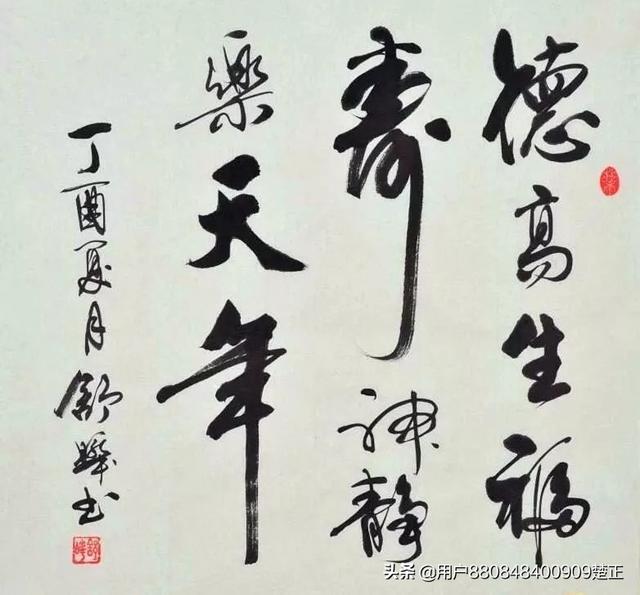 德高生福
寿神静
樂天年
丁酉夏月舒晖书
头条 @用户880848400909楚正